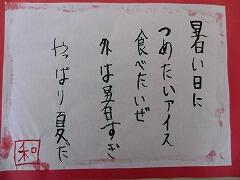 暑い日に
つめたいアイス
食べたいぜ
外は暑すぎ
やっぱり夏だ
和